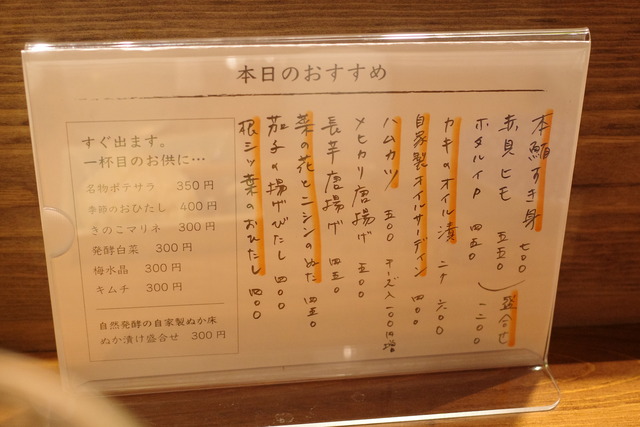 本日のおすすめ
本鮪すき身 七〇〇
赤貝ヒモ 五五〇
ホタルイカ 四五〇
盛合せ 一二〇〇
カキのオイル漬 二ケ 六〇〇
自家製オイルサーディン 四〇〇
ハムカツ 五〇〇 チーズ入一〇〇円増
メヒカリ唐揚げ 五〇〇
長芋唐揚げ 四五〇
菜の花とニシンのぬた 四五〇
茄子の揚げびたし 四〇〇
根ミツ葉のおひたし 四〇〇
すぐ出ます。
一杯目のお供に…
名物ポテサラ 350円
季節のおひたし 400円
きのこマリネ 300円
発酵白菜 300円
梅水晶 300円
キムチ 300円
自然発酵の自家製ぬか床
ぬか漬け盛合せ 300円